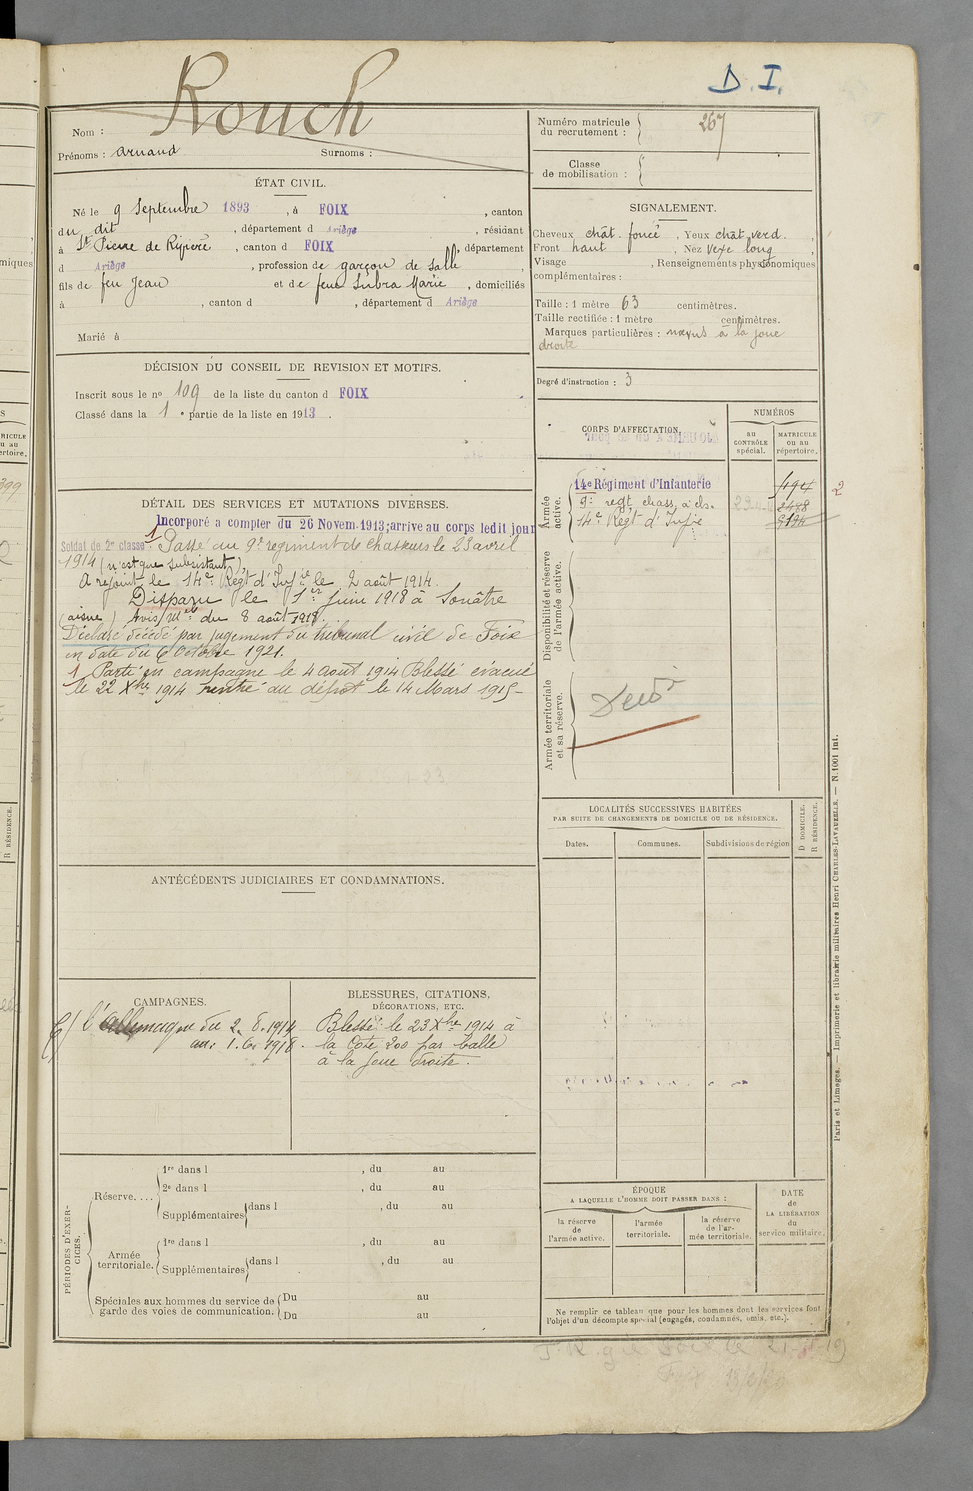 D. I.
Rouch
Nom :
Prénoms : Arnaud Surnoms :
Numéro matricule
du recrutement : 267
Classe
de mobilisation :
ÉTAT CIVIL.
Né le 9 Septembre 1893, à FOIX, canton
du dit, département d Ariège, résidant
à St Pierre de Rivière, canton d FOIX, département
d Ariège, profession de garçon de salle
fils de feu Jean et de feue Subra Marie, domiciliés
à , canton d , département d Ariège
Marié à
SIGNALEMENT.
Cheveux chât. foncé, Yeux chât. verd.
Front haut, Nez vexe long
Visage , Renseignements physionomiques
complémentaires :
Taille : 1 mètre 63 centimètres.
Taille rectifiée : 1 mètre centimètres.
Marques particulières : nævus à la joue
droite
Degré d'instruction : 3
DÉCISION DU CONSEIL DE REVISION ET MOTIFS.
Inscrit sous le no 109 de la liste du canton d FOIX
Classé dans la 1e partie de la liste en 1913.
CORPS D'AFFECTATION.
NUMÉROS
au
CONTRÔLE
spécial.
MATRICULE
ou au
répertoire.
Armée
active.
14e Régiment d'Infanterie
9e regt chass. à ch.
14e Regt d'Infie
2
Disponibilité et réserve
de l'armée active.
Armée territoriale
et sa réserve.
DÉTAIL DES SERVICES ET MUTATIONS DIVERSES.
Incorporé a compter du 26 Novem. 1913; arrive au corps ledit jour
Soldat de 2e classe. 1 Passé au 9e regiment de chasseurs le 23 avril
1914 (n'est que subsistant).
A rejoint le 14e Regt d'Infie le 2 août 1914.
Disparu le 1er Juin 1918 à Sonâtre
(aisne) Avis Mel du 8 août 1918.
Déclaré décédé par jugement du tribunal civil de Foix
en date du 6 Octobre 1921.
1 Parti en campagne le 4 Août 1914 Blessé évacué
le 22 Xbre 1914 rentré au dépot le 14 Mars 1915-
LOCALITÉS SUCCESSIVES HABITÉES
PAR SUITE DE CHANGEMENTS DE DOMICILE OU DE RÉSIDENCE.
Dates.
Communes.
Subdivisions de région
D DOMICILE.
R RÉSIDENCE.
ANTÉCÉDENTS JUDICIAIRES ET CONDAMNATIONS.
CAMPAGNES.
l'allemagne du 2.8.1914
au: 1.6.1918.
BLESSURES, CITATIONS,
DÉCORATIONS, ETC.
Blessé le 23 Xbre 1914 à
la Cote 200 par balle
à la joue droite.
PÉRIODES D'EXER-
CICES.
Réserve....
1re dans l , du au
2e dans l , du au
Supplémentaires dans l , du au
Armée
territoriale.
1re dans l , du au
Supplémentaires dans l , du au
Spéciales aux hommes du service de
garde des voies de communication.
Du au
Du au
ÉPOQUE
A LAQUELLE L'HOMME DOIT PASSER DANS :
la réserve
de
l'armée active.
l'armée
territoriale.
la réserve
de l'ar-
mée territoriale.
DATE
de
LA LIBÉRATION
du
service militaire.
Ne remplir ce tableau que pour les hommes dont les services font
l'objet d'un décompte spécial (engagés, condamnés, omis, etc.).
Paris et Limoges. — Imprimerie et librairie militaires Henri CHARLES-LAVAUZELLE. — N. 1001 int.